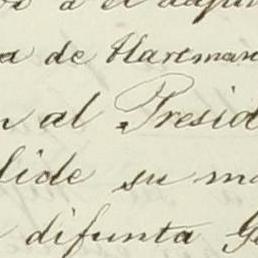 a de Hartman
al Presid
lide su ma
difunta G